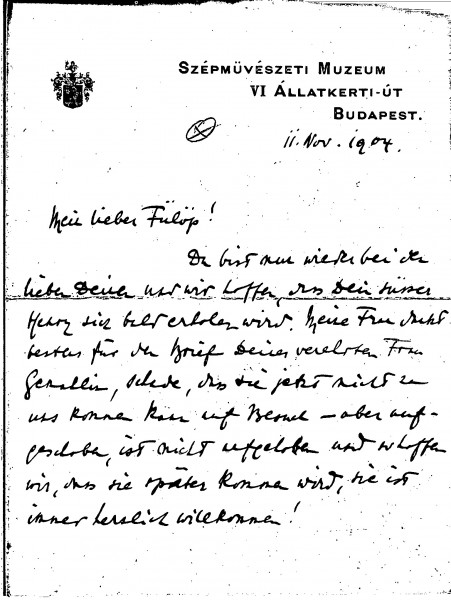 SZÉPMŰVÉSZETI MUZEUM
VI ÁLLATKERTI-ÚT
BUDAPEST.
11. Nov. 1904.
Mein lieber Fülöp!
Du bist nun wieder bei den
lieben Deinen und wir hoffen, dass Dein süsser
Henry sich bald erholen wird. Meine Frau dankt
bestens für den Brief Deiner verehrten Frau
Gemahlin, schade, dass sie jetzt nicht zu
uns kommen kann auf Besuch – aber auf-
geschoben, ist nicht aufgehoben und so hoffen
wir, dass sie später kommen wird, sie ist
immer herzlich willkommen!